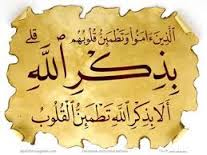 الَّذِينَ ءَامَنُوا وَتَطْمَئِنُّ قُلُوبُهُم
بِذِكْرِ اللَّهِ
أَلَا بِذِكْرِ اللَّهِ تَطْمَئِنُّ الْقُلُوبُ